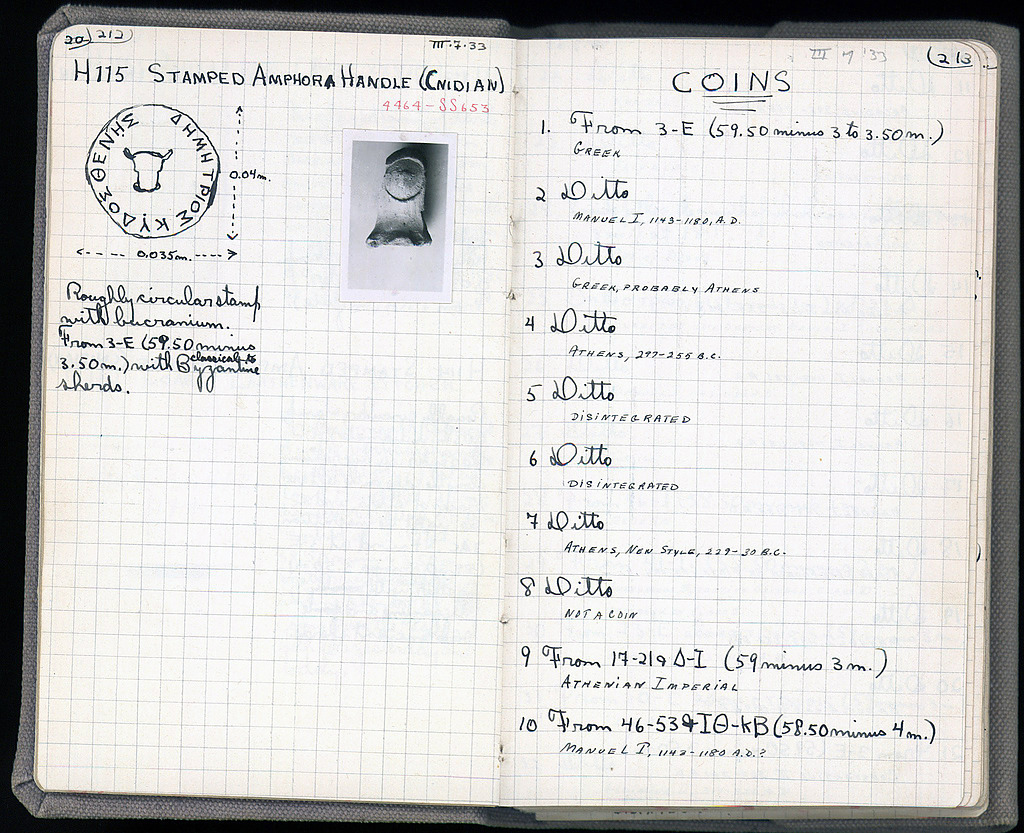 20 212
III.7.33
H115 STAMPED AMPHORA HANDLE (CNIDIAN)
4464-SS653
ΔΗΜΗΤΡΙΟΣ ΚΥΔΟΣΘΕΝΗΣ
0.04m.
0.035m.
Roughly circular stamp
with bucranium.
From 3-E (59.50 minus
3.50m.) with classical to Byzantine
sherds.
III 7 '33
213
COINS
1. From 3-E (59.50 minus 3 to 3.50m.)
GREEK
2 Ditto
MANUEL I, 1143-1180, A.D.
3 Ditto
GREEK, PROBABLY ATHENS
4 Ditto
ATHENS, 297-255 B.C.
5 Ditto
DISINTEGRATED
6 Ditto
DISINTEGRATED
7 Ditto
ATHENS, NEW STYLE, 229-30 B.C.
8 Ditto
NOT A COIN
9 From 17-21 Δ-I (59 minus 3m.)
ATHENIAN IMPERIAL
10 From 46-53 IΘ-KB (58.50 minus 4m.)
MANUEL I, 1143-1180 A.D.?